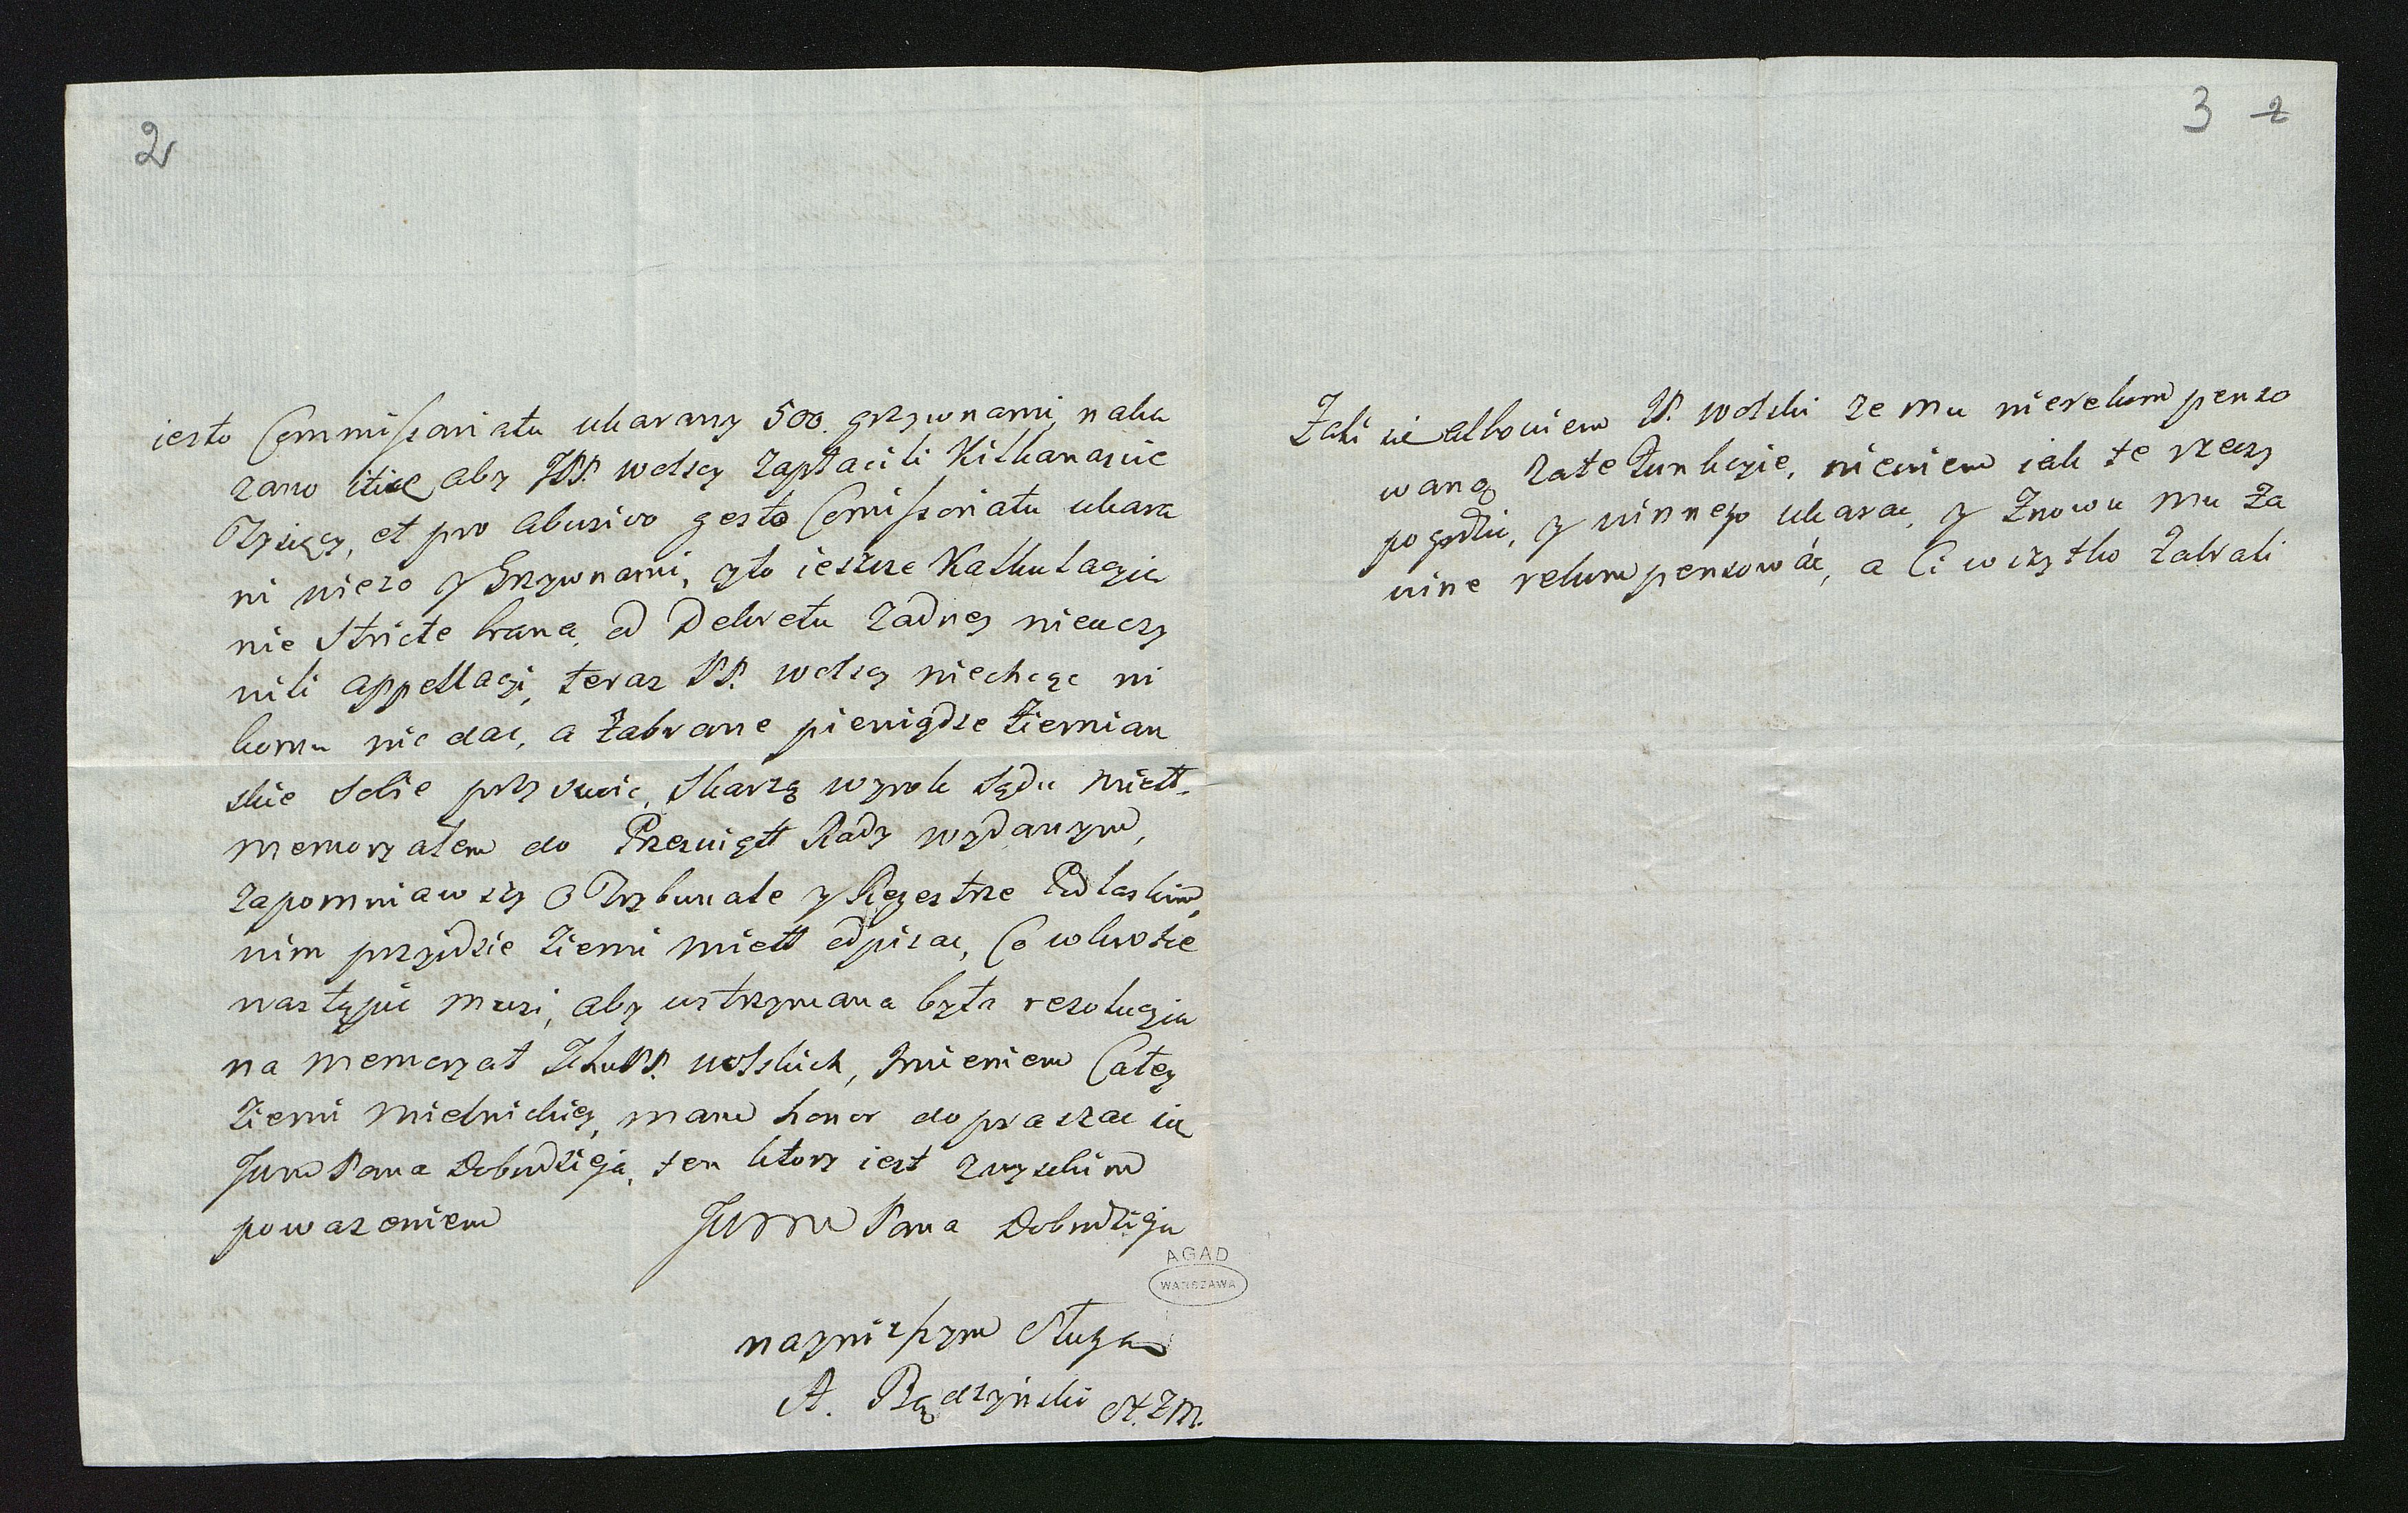 2
iesto Commissariatu ukarany 500. grzywnami, naka
zano aby JPP. wolscy zapłacili Kilkanascie
Tysięcy, et pro abusivo gesto Comissoriatu ukara
ni wiezo y Grzywnami, yto ieszcze Kalkulacyia
nie Stricte brana, od Dekretu żadney nieuczy
nili appellacyi, teraz PP. wolscy niechcąc ni
komu nic dac, a Zabrane pieniądze Ziemian
skie Sobie, Skarżą wyrok Sądu Mielt.
memoryałem do Przeswięt Rady wydanym,
zapomniawszy o Trybunale y Regestrze Podlaskim,
nim przyidzie Ziemi Mielt odpisac, Co wkrotce
nastąpic musi, aby wstrzymana była rezolucyia
na memoryał PP. wolskich, Imieniem Całey
Ziemi Mielnickiey, mam honor dopraszac się
JWM Pana Dobrodzieja, ten ktory iest zwysokim
poważeniem JWMM Pana Dobrodzieja
AGAD
WARSZAWA
nayniższym Sługa
A. Bądzyński S.Z.M.
3 2
Żali się albowiem P. wolski ze mu nierekompenzo
waną zate Funkcyie, niewiem iak te rzeczy
pogodzic, y winnego ukarac, y Znowu mu Za
wine rekompensowác, a Ci wszystko Zabrali